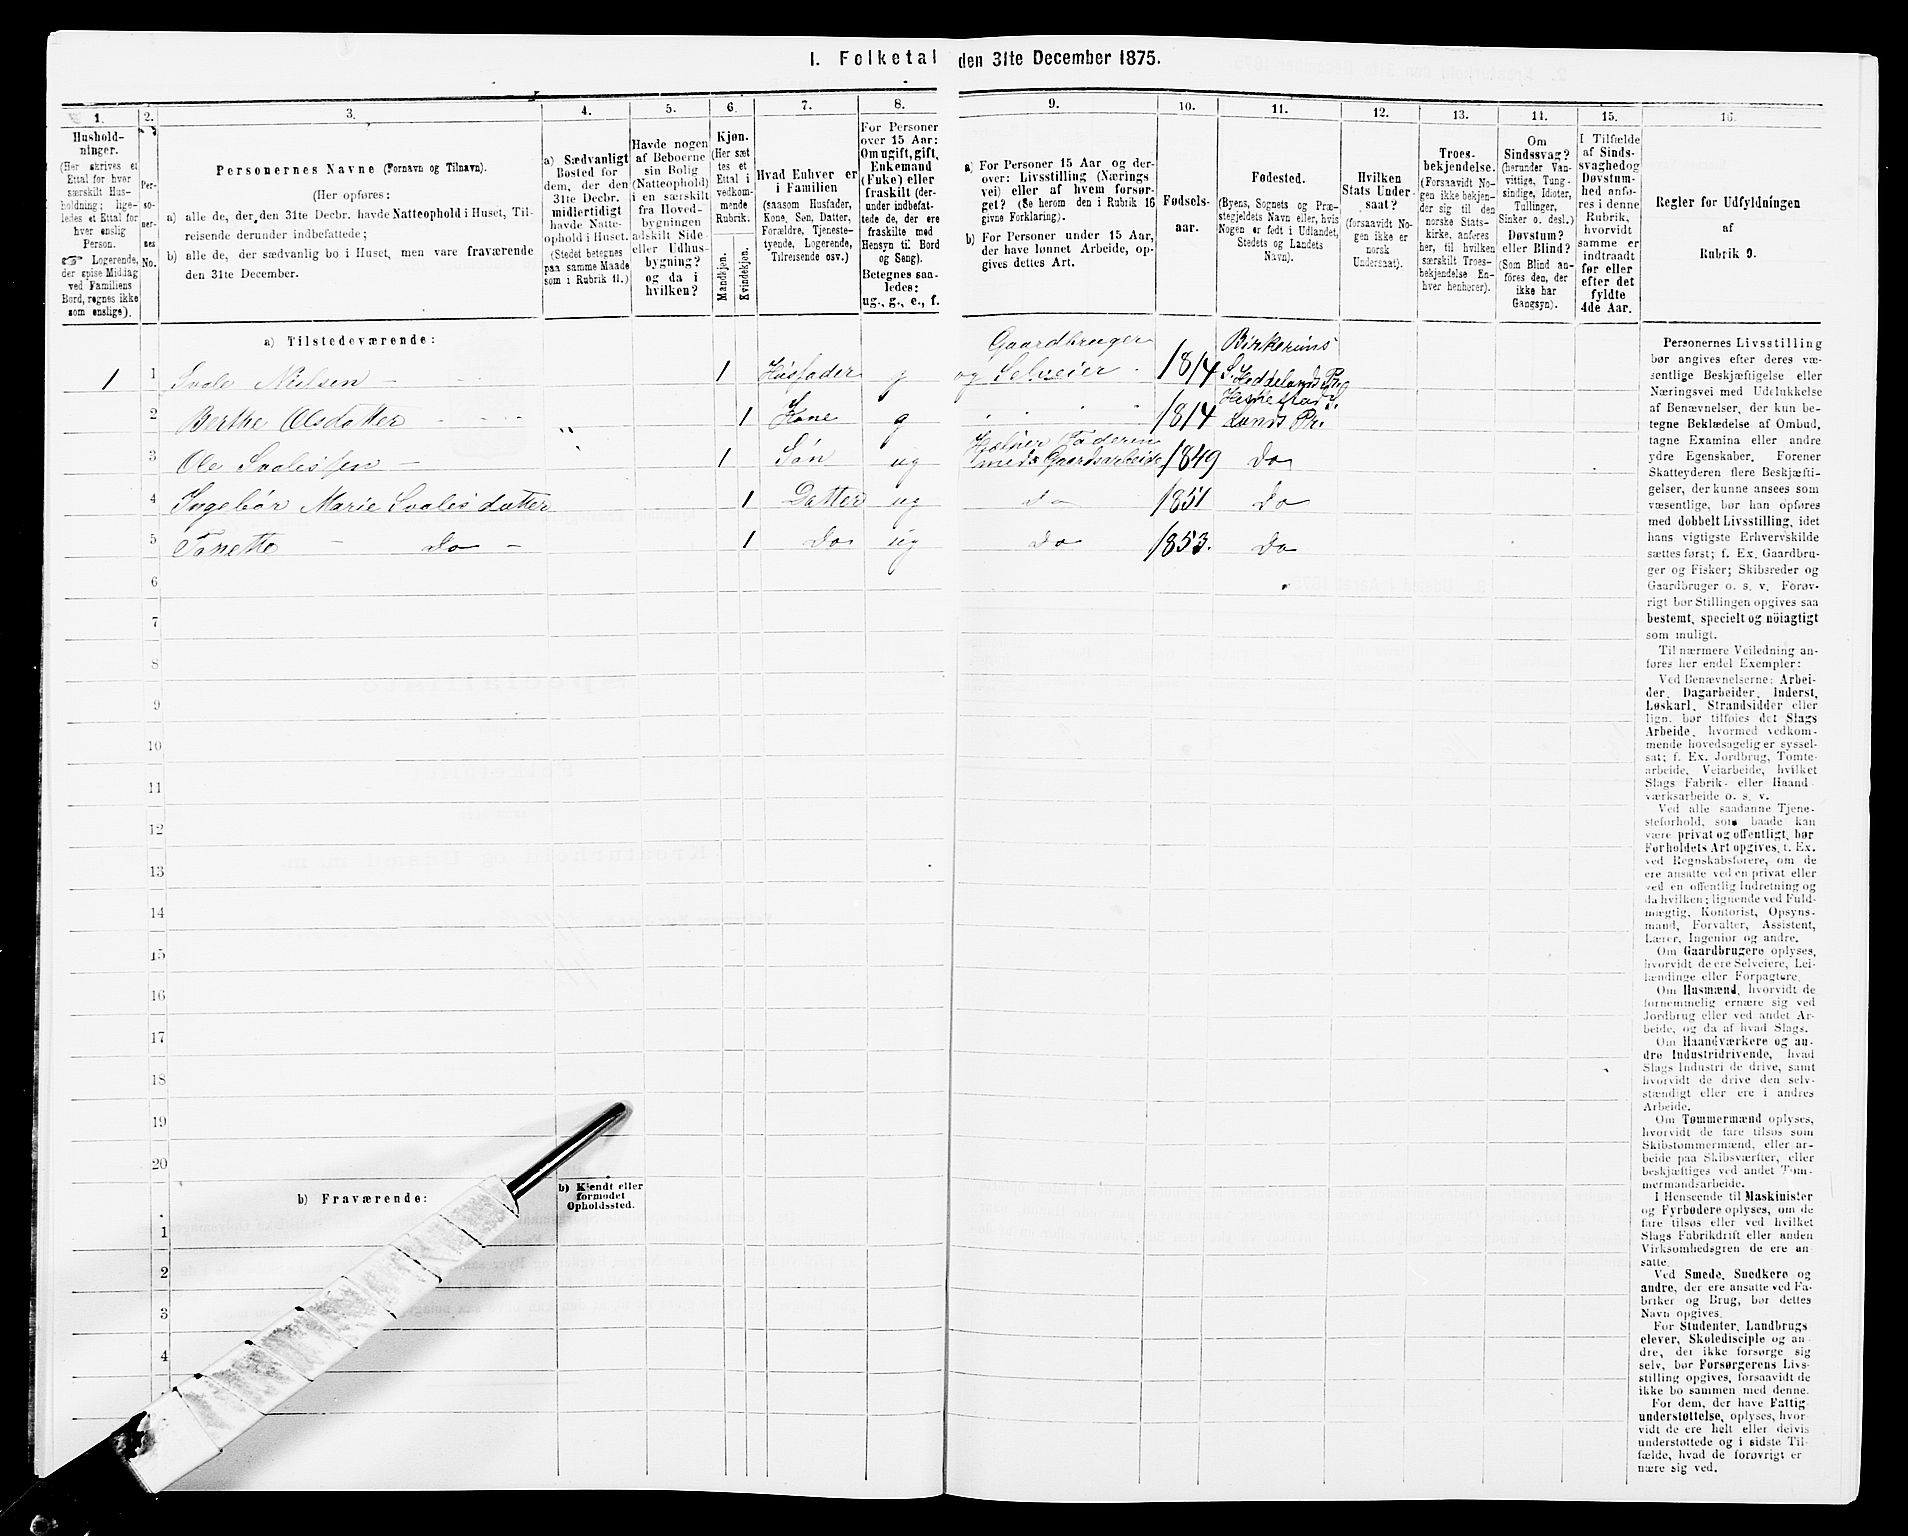 I. Folketal den 31te December 1875.
1.
2.
3.
4.
5.
6.
7.
8.
9.
10.
11.
12.
13.
14.
15.
16.
Hushold-
ninger.
(Her skrives et
Ettal for hver
særskilt Hus-
holdning; lige-
ledes et Ettal for
hver enslig
Person.
☞ Logerende,
der spise Middag
ved Familiens
Bord, regnes ikke
som enslige).
Per-
so-
ner-
nes
No.
Personernes Navne (Fornavn og Tilnavn).
(Her opføres:
a) alle de, der den 31te Decbr. havde Natteophold i Huset, Til-
reisende derunder indbefattede;
b) alle de, der sædvanlig bo i Huset, men vare fraværende
den 31te December.
a) Sædvanligt
Bosted for
dem, der den
31te Decbr.
midlertidigt
havde Natte-
ophold i Huset.
(Stedet betegnes
paa samme Maade
som i Rubrik 11.)
Havde nogen
af Beboerne
sin Bolig
(Natteophold)
i en særskilt
fra Hoved-
bygningen
adskilt Side-
eller Udhus-
bygning?
og da i
hvilken?
Kjøn.
(Her sæt-
tes et
Ettal i
vedkom-
mende
Rubrik.
Mandkjøn.
Kvindekjøn.
Hvad Enhver er
i Familien
(saasom Husfader,
Kone, Søn, Datter,
Forældre, Tjeneste-
tyende, Logerende,
Tilreisende osv.)
For Personer
over 15 Aar:
Om ugift, gift,
Enkemand
(Enke) eller
fraskilt (der-
under indbefat-
tede de, der ere
fraskilte med
Hensyn til Bord
og Seng).
Betegnes saa-
ledes:
ug., g., e., f.
a) For Personer 15 Aar og der-
over: Livsstilling (Nærings-
vei) eller af hvem forsør-
get? (Se herom den i Rubrik 16
givne Forklaring).
b) For Personer under 15 Aar,
der have lønnet Arbeide, op-
gives dettes Art.
Fødsels-
aar.
Fødested.
(Byens, Sognets og Præ-
stegjeldets Navn eller, hvis
Nogen er født i Udlandet,
Stedets og Landets
Navn).
Hvilken
Stats Under-
saat?
(forsaavidt No-
gen ikke er
norsk
Undersaat).
Troes-
bekjendelse.
(Forsaavidt No-
gen ikke bekjen-
der sig til den
norske Stats-
kirke, anføres
her, til hvilken
særskilt Troes-
bekjendelse En-
hver henhører).
Om
Sindssvag?
(herunder Van-
vittige, Tung-
sindige, Idioter,
Tullinger,
Sinker o. desl.)
Døvstum?
eller Blind?
(Som Blind an-
føres den, der
ikke har
Gangsyn).
I Tilfælde
af Sinds-
svaghed og
Døvstum-
hed anfø-
res i denne
Rubrik,
hvorvidt
samme er
indtraadt
før eller
efter det
fyldte
4de Aar.
Regler for Udfyldningen
af
Rubrik 9.
a) Tilstedeværende:
1 1 Svale Nielsen 1 Husfader g Gaardbruger og Selveier 1814 Birkerims S. Heddelands Prg
2 Berthe Olsdatter 1 Kone g 1814 Heskestad S. Lunds Pr.
3 Ole Svalessen 1 Søn ug Hjelper Faderen med Gaardsarbeide 1849 Do
4 Ingebor Marie Svalesdatter 1 Datter ug do 1851 Do
5 Tonette Do 1 Do ug Do 1853. Do
6
7
8
9
10
11
12
13
14
15
16
17
18
19
20
b) Fraværende:
b) Kjendt eller
formodet
Opholdssted.
1
2
3
4
Personernes Livsstilling
bør angives efter deres væ-
sentlige Beskjæftigelse eller
Næringsvei med Udelukkelse
af Benævnelser, der kun be-
tegne Beklædelse af Ombud,
tagne Examina eller andre
ydre Egenskaber. Forener
Skatteyderen flere Beskjæfti-
gelser, der kunne ansees som
væsentlige, bør han opføres
med dobbelt Livsstilling, idet
hans vigtigste Erhvervskilde
sættes først; f. Ex. Gaardbru-
ger og Fisker; Skibsreder og
Gaardbruger o. s. v. Forøv-
rigt bør Stillingen opgives saa
bestemt, specielt og nöiagtigt
som muligt.
Til nærmere Veiledning an-
føres her endel Exempler:
Ved Benævnelserne: Arbei-
der, Dagarbeider, Inderst,
Løskarl, Strandsidder eller
lign. bør tilføies det Slags
Arbeide, hvormed vedkom-
mende hovedsagelig er syssel-
sat; f. Ex. Jordbrug, Tomte-
arbeide, Veiarbeide, hvilket
Slags Fabrik- eller Haand-
værksarbeide o. s. v.
Ved alle saadanne Tjene-
steforhold, som baade kan
være privat og offentligt, bør
Forholdets Art opgives, f. Ex.
ved Regnskabsførere, om de
ere ansatte ved en privat eller
ved en offentlig Indretning og
da hvilken; lignende ved Fuld-
mægtig, Kontorist, Opsyns-
mand, Forvalter, Assistent,
Lærer, Ingeniør og andre.
Om Gaardbrugere oplyses,
hvorvidt de ere Selveiere, Lei-
lændinge eller Forpagtere.
Om Husmænd, hvorvidt de
fornemmelig ernære sig ved
Jordbrug eller ved andet Ar-
beide, og da af hvad Slags.
Om Haandværkere og an-
dre Industridrivende, hvad
Slags Industri de drive, samt
hvorvidt de drive den selv-
stændigt eller ere i andres
Arbeide.
Om Tømmermænd oplyses,
hvorvidt de fare tilsøs som
Skibstømmermænd, eller ar-
beide paa Skibsværfter, eller
beskjæftiges ved andet Tøm-
mermandsarbeide.
I Henseende til Maskinister
og Fyrbødere oplyses, om de
fare tilsøs eller ved hvilket
Slags Fabrikdrift eller anden
Virksomhedsgren de ere an-
satte.
Ved Smede, Snedkere og
andre, der ere ansatte ved Fa-
briker og Brug, bør dettes
Navn opgives.
For Studenter, Landbrugs-
elever, Skoledisciple og an-
dre, der ikke forsørge sig
selv, bør Forsørgerens Livs-
stilling opgives, forsaavidt de
ikke bo sammen med denne.
For dem, der have Fattig-
understøttelse, oplyses, hvor-
vidt de ere helt eller delvis
understøttede og i sidste Til-
fælde, hvad de forøvrigt er-
nære sig ved.